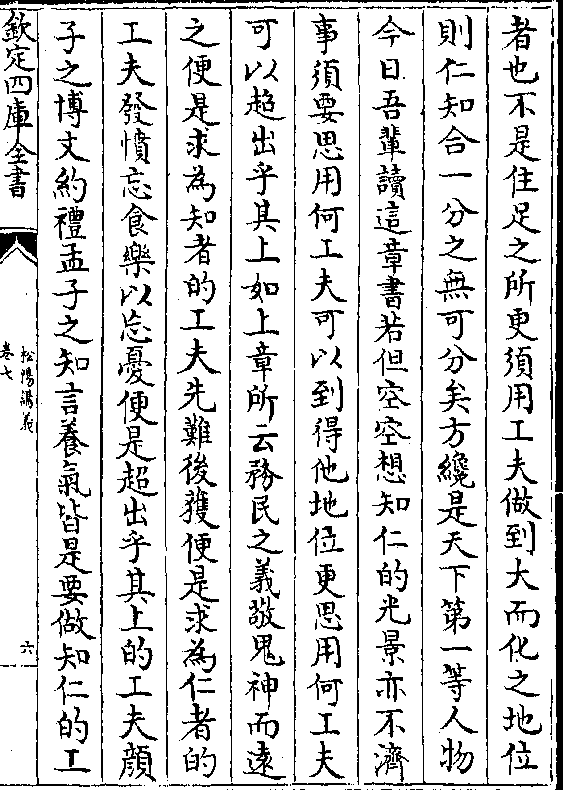 者也不是住足之所更須用工夫做到大而化之地位
則仁知合一分之無可分矣方纔是天下第一等人物
今日吾輩讀這章書若但空空想知仁的光景亦不濟
事須要思用何工夫可以到得他地位更思用何工夫
可以超出乎其上如上章所云務民之義敬鬼神而遠
之便是求為知者的工夫先難後獲便是求為仁者的
工夫發憤忘食樂以忘憂便是超出乎其上的工夫顔
子之博文約禮孟子之知言養氣皆是要做知仁的工
欽定四庫全書
松陽講義
卷七
六